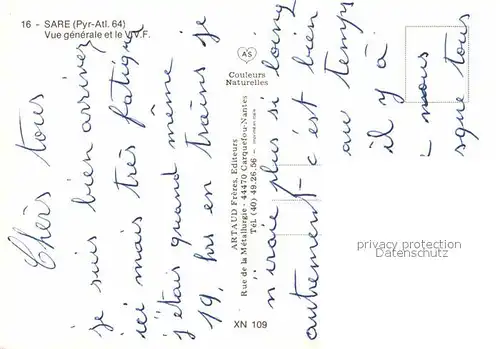 16 - SARE (Pyr-Atl. 64)
Vue générale et le V.V.F.
Couleurs
Naturelles
ARTAUD Frères, Editeurs
Rue de la Métallurgie - 44470 Carquefou-Nantes
Tél. (40) 49.26.56
XN 109
Chèrs tous
je suis bien arriver
ici mais très fatiguer
j'étais quand même
19, hrs en trains je
n'irais plus si loing
autrement c'est bien
au temps
il y à
nous
sque tous
privacy protection
Datenschutz